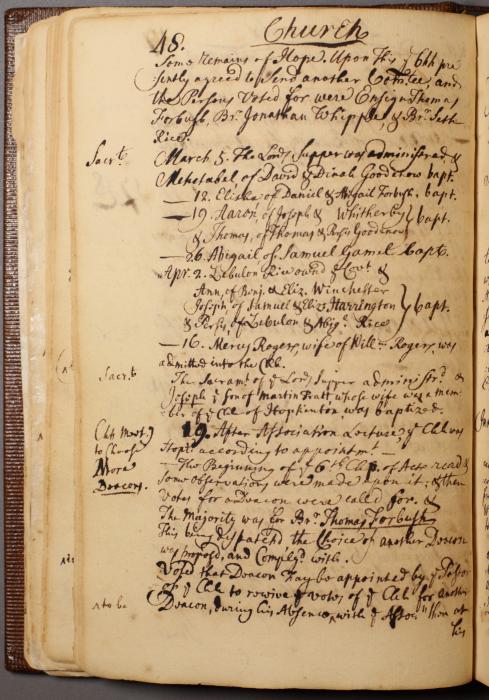 Church
48.
Some Remains of Hope. Upon This yͤ Chh pre
sently agreed to Send another Com̃tee, and
the Persons Voted for were Ensign Thomas
Forbush, Br. Jonathan Whipple, & Br. Seth
Rice.
Sacrt.
March 5. The Lords Supper was administred &
Mehetabel of David & Dinah Goodenow bapt.
— 12. Elisha of Daniel & Abigail Forbush. bapt.
— 19. Aaron, of Joseph & Whitherby } bapt.
& Thomas, of Thomas & Persis Goodenow
— 26. Abigail of Samuel Gamel bapt.
Apr. 2. Zebulon Rice ownd yͤ Covt &
Ann, of Benj. & Eliz. Winchester
Joseph of Samuel & Eliz. Harrington } bapt.
& Persis, of Zebulon & Abigl Rice
— 16. Mercy Rogers, wife of Willm Rogers, was
admitted into the Chh.
Sacrt.
The Sacramt of yͤ Lords Supper administrd &
Joseph yͤ son of Martin Pratt whose wife was a mem
ber of yͤ Chh of Hopkinton was baptized.
Chh Meetg
to Choose
More
Deacons.
19. After Association Lecture, yͤ Chh was
Stopt according to appointmt. —
— The Beginning of yͤ 6th Chp. of Acts read &
Some Observations were made upon it; & then
Votes for a Deacon were called for. &
The Majority was for Br. Thomas Forbush
This being dispatchd the Choice of another Deacon
was proposd, and Complyd with.
Voted that Deacon may be appointed by yͤ Pastor
of yͤ Chh to receive yͤ votes of yͤ Chh for another
^ to be
Deacon, during his Absence ^ with yͤ Assocn then at
his